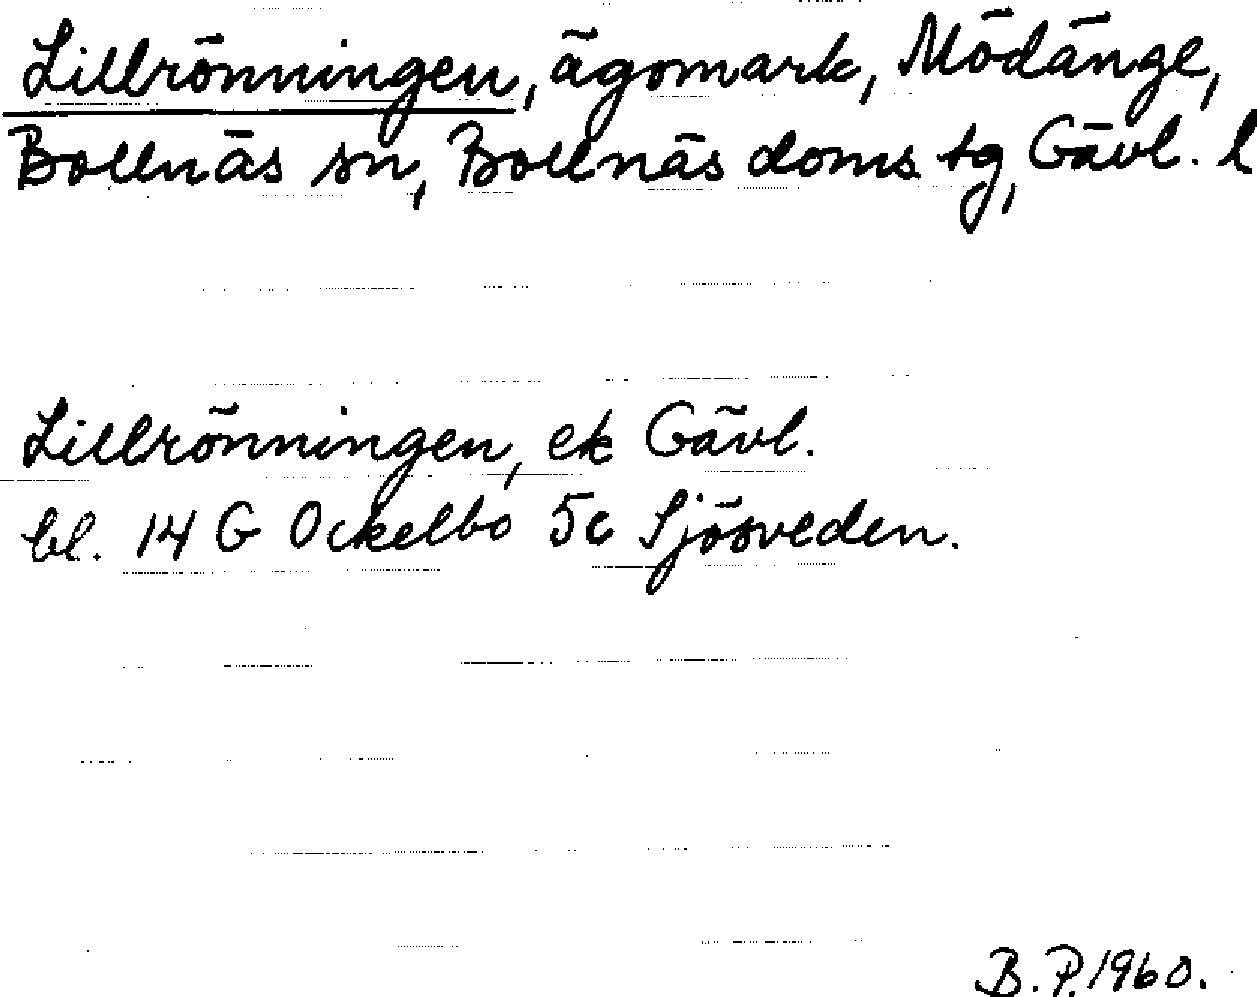 Lillrönningen, ägomark, Mödänge,
Bollnäs sn, Bollnäs doms. tg, Gävl. l
Lillrönningen, ek Gävl.
bl. 14 G Ockelbo 5c Sjösveden.
B.P. 1960.